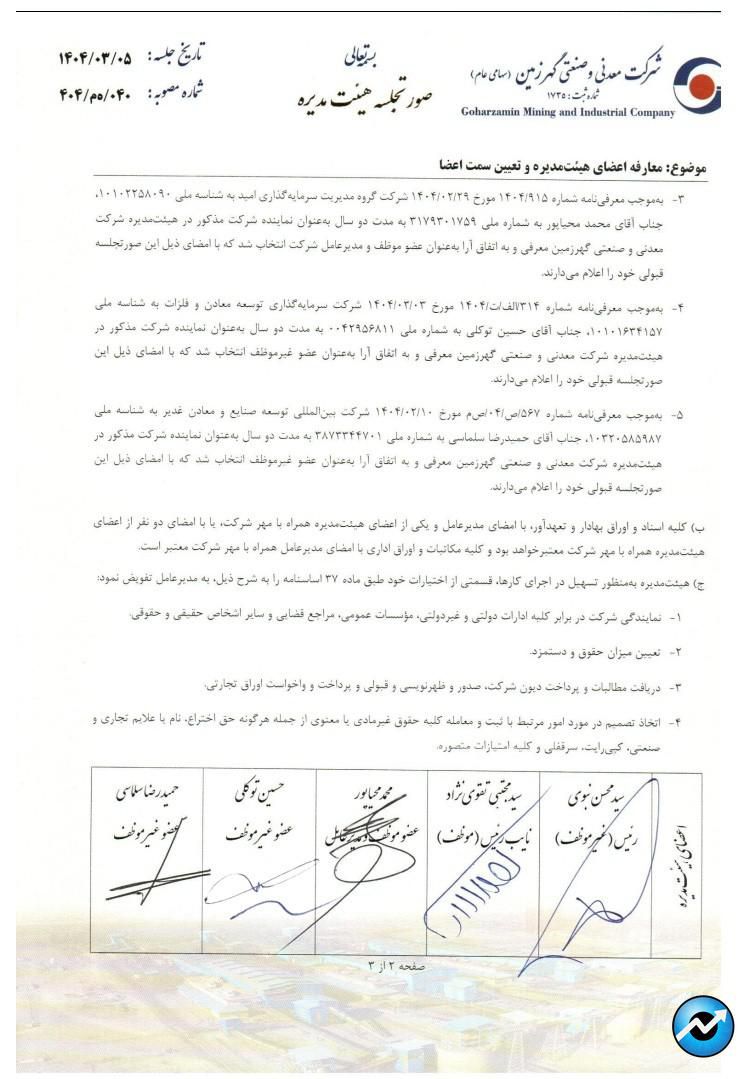 شرکت معدنی و صنعتی گهرزمین (سهامی عام)
شماره ثبت: ۱۷۳۵
Goharzamin Mining and Industrial Company
بسمه‌تعالی
صورتجلسه هیئت مدیره
تاریخ جلسه: ۱۴۰۴/۰۳/۰۵
شماره مصوبه: ۴۰۴/هم/۰۴۰
موضوع: معارفه اعضای هیئت‌مدیره و تعیین سمت اعضا
۳- به‌موجب معرفی‌نامه شماره ۱۴۰۴/۹۱۵ مورخ ۱۴۰۴/۰۲/۲۹ شرکت گروه مدیریت سرمایه‌گذاری امید به شناسه ملی ۱۰۱۰۲۲۵۸۰۹۰،
جناب آقای محمد محیاپور به شماره ملی ۳۱۷۹۳۰۱۷۵۹ به مدت دو سال به‌عنوان نماینده شرکت مذکور در هیئت‌مدیره شرکت
معدنی و صنعتی گهرزمین معرفی و به اتفاق آرا به‌عنوان عضو موظف و مدیرعامل شرکت انتخاب شد که با امضای ذیل این صورتجلسه
قبولی خود را اعلام می‌دارند.
۴- به‌موجب معرفی‌نامه شماره ۳۱۴/الف/ت/۱۴۰۴ مورخ ۱۴۰۴/۰۳/۰۳ شرکت سرمایه‌گذاری توسعه معادن و فلزات به شناسه ملی
۱۰۱۰۱۶۳۴۱۵۷، جناب آقای حسین توکلی به شماره ملی ۰۰۴۲۹۵۶۸۱۱ به مدت دو سال به‌عنوان نماینده شرکت مذکور در
هیئت‌مدیره شرکت معدنی و صنعتی گهرزمین معرفی و به اتفاق آرا به‌عنوان عضو غیرموظف انتخاب شد که با امضای ذیل این
صورتجلسه قبولی خود را اعلام می‌دارند.
۵- به‌موجب معرفی‌نامه شماره ۵۶۷/ص/۰۴/ص‌م مورخ ۱۴۰۴/۰۲/۱۰ شرکت بین‌المللی توسعه صنایع و معادن غدیر به شناسه ملی
۱۰۳۲۰۵۸۵۹۸۷، جناب آقای حمیدرضا سلماسی به شماره ملی ۳۸۷۳۳۴۴۷۰۱ به مدت دو سال به‌عنوان نماینده شرکت مذکور در
هیئت‌مدیره شرکت معدنی و صنعتی گهرزمین معرفی و به اتفاق آرا به‌عنوان عضو غیرموظف انتخاب شد که با امضای ذیل این
صورتجلسه قبولی خود را اعلام می‌دارند.
ب) کلیه اسناد و اوراق بهادار و تعهدآور، با امضای مدیرعامل و یکی از اعضای هیئت‌مدیره همراه با مهر شرکت، یا با امضای دو نفر از اعضای
هیئت‌مدیره همراه با مهر شرکت معتبرخواهد بود و کلیه مکاتبات و اوراق اداری با امضای مدیرعامل همراه با مهر شرکت معتبر است.
ج) هیئت‌مدیره به‌منظور تسهیل در اجرای کارها، قسمتی از اختیارات خود طبق ماده ۳۷ اساسنامه را به شرح ذیل، به مدیرعامل تفویض نمود:
۱- نمایندگی شرکت در برابر کلیه ادارات دولتی و غیردولتی، مؤسسات عمومی، مراجع قضایی و سایر اشخاص حقیقی و حقوقی.
۲- تعیین میزان حقوق و دستمزد.
۳- دریافت مطالبات و پرداخت دیون شرکت، صدور و ظهرنویسی و قبولی و پرداخت و واخواست اوراق تجارتی.
۴- اتخاذ تصمیم در مورد امور مرتبط با ثبت و معامله کلیه حقوق غیرمادی یا معنوی از جمله هرگونه حق اختراع، نام یا علایم تجاری و
صنعتی، کپی‌رایت، سرقفلی و کلیه امتیازات متصوره.
اعضای هیئت مدیره
سید محسن نبوی
رئیس (غیرموظف)
سید مجتبی تقوی نژاد
نایب رئیس (موظف)
محمد محیاپور
عضو موظف و مدیرعامل
حسین توکلی
عضو غیر موظف
حمیدرضا سلماسی
عضو غیر موظف
صفحه ۲ از ۳